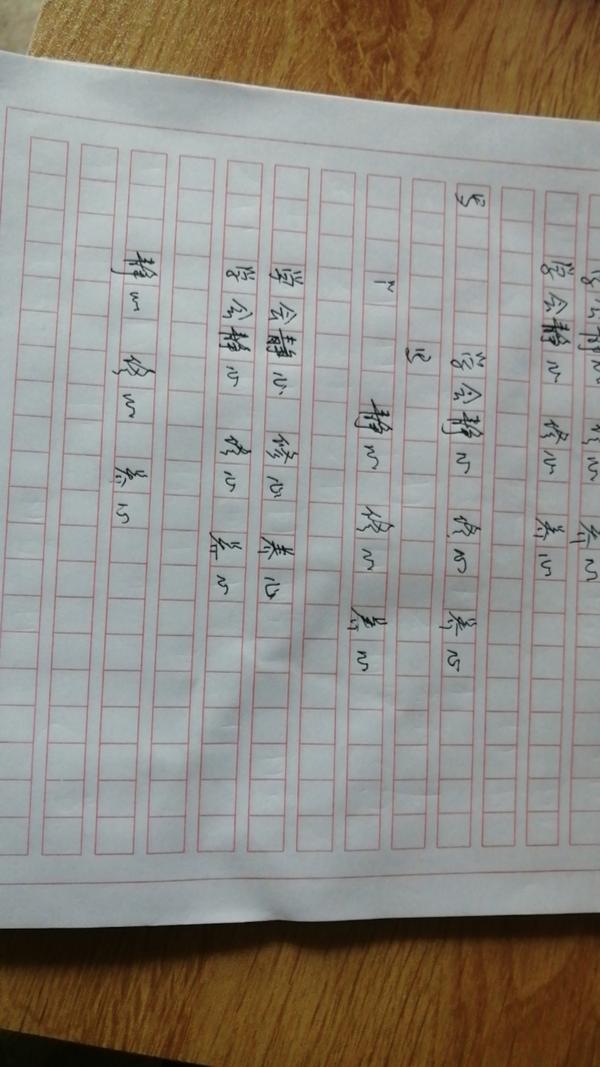 学会静心 修心 养心
学会静心 修心 养心
学会静心 修心 养心
静心 修心 养心
学会静心 修心 养心
学会静心 修心 养心
静心 修心 养心